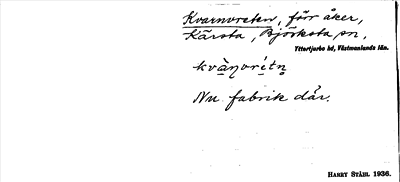 Kvarnvreten, förr åker,
Kärsta, Björksta sn,
Yttertjurbo hd, Västmanlands län.
kvà̀ŋvrétn̥
Nu fabrik där.
HARRY STÅHL 1936.